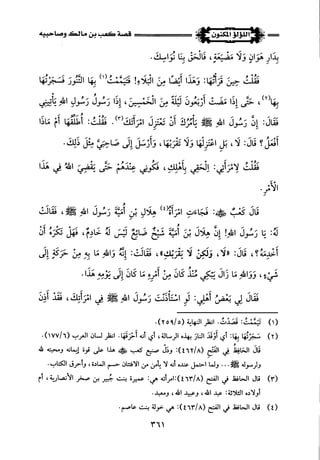 اللؤلؤ المكنون قصة كعب بن مالك وصاحبيه
بدار هوان ولا مضيعة، فالحق بنا نواسك.
فقلت حين قرأتها: وهذا أيضا من البلاء! فتيممت(١) بها التنور فسجرتها
بها(٢)، حتى إذا مضت أربعون ليلة من الخمسين، إذا رسول رسول الله ﷺ يأتيني
فقال: إن رسول الله ﷺ يأمرك أن تعتزل امرأتك(٣). فقلت: أطلقها أم ماذا
أفعل؟ قال: لا، بل اعتزلها ولا تقربها، وأرسل إلى صاحبي مثل ذلك.
فقلت لامرأتي: الحقي بأهلك، فكوني عندهم حتى يقضي الله في هذا
الأمر.
قال كعب ﷺ: فجاءت امرأة(٤) هلال بن أمية رسول الله ﷺ، فقالت
له: يا رسول الله! إن هلال بن أمية شيخ ضائع ليس له خادم، فهل تكره أن
أخدمه؟ قال: «لا، ولكن لا يقربك»، فقالت: إنه والله ما به من حركة إلى
شيء، والله ما زال يبكي منذ كان من أمره ما كان إلى يومه هذا.
قال لي بعض أهلي: لو استأذنت رسول الله ﷺ في امرأتك، فقد أذن
(١) تيممت: قصدت. انظر النهاية (٢٥٩/٥).
(٢) سجرتها بها: أي أوقد النار بهذه الرسالة، أي أحرقها. انظر لسان العرب (١٧٧/٦).
قال الحافظ في الفتح (٤٦٢/٨): ودل صنيع كعب ﷺ هذا على قوة إيمانه ومحبته لله
ولرسوله ﷺ ... ولما احتمل عنده أنه لا يأمن من الافتتان حسم المادة، وأحرق الكتاب.
(٣) قال الحافظ في الفتح (٤٦٣/٨): امرأته هي: عميرة بنت جبير بن صخر الأنصارية، أم
أولاده الثلاثة: عبد الله، وعبيد الله، ومعبد.
(٤) قال الحافظ في الفتح (٤٦٣/٨): هي خولة بنت عاصم.
٣٦١